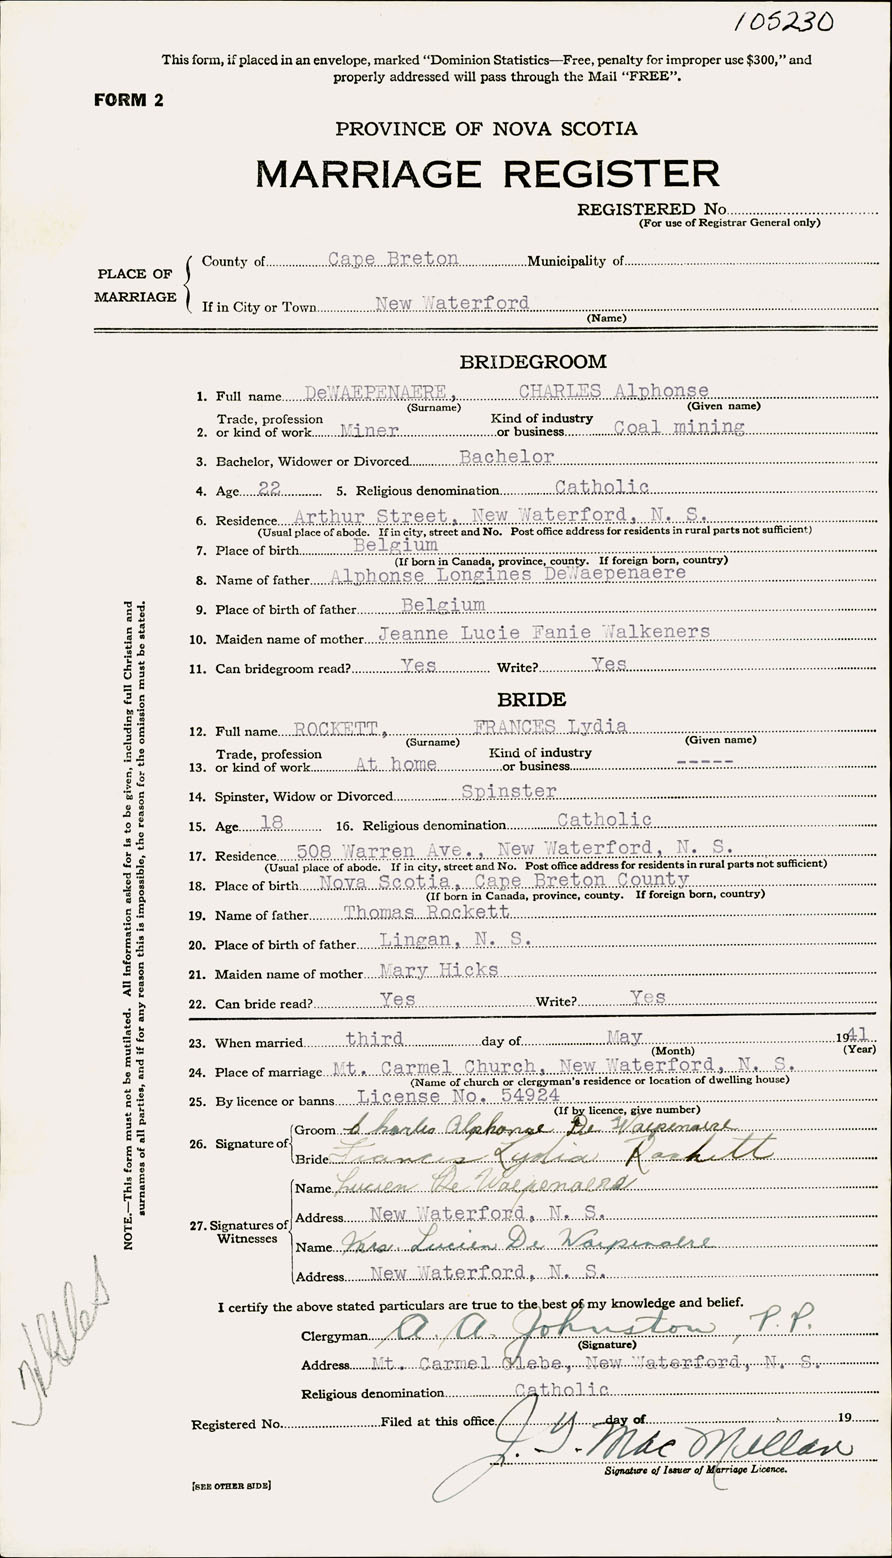 105230
This form, if placed in an envelope, marked “Dominion Statistics—Free, penalty for improper use $300,” and
properly addressed will pass through the Mail “FREE”.
FORM 2
PROVINCE OF NOVA SCOTIA
MARRIAGE REGISTER
REGISTERED No.
(For use of Registrar General only)
PLACE OF MARRIAGE
County of Cape Breton Municipality of
If in City or Town New Waterford
(Name)
BRIDEGROOM
1. Full name DeWAEPENAERE, CHARLES Alphonse
(Surname) (Given name)
Trade, profession Kind of industry
2. or kind of work Miner or business Coal mining
3. Bachelor, Widower or Divorced Bachelor
4. Age 22 5. Religious denomination Catholic
6. Residence Arthur Street, New Waterford, N. S.
(Usual place of abode. If in city, street and No. Post office address for residents in rural parts not sufficient)
7. Place of birth Belgium
(If born in Canada, province, county. If foreign born, country)
8. Name of father Alphonse Longines DeWaepenaere
9. Place of birth of father Belgium
10. Maiden name of mother Jeanne Lucie Fanie Walkeners
11. Can bridegroom read? Yes Write? Yes
BRIDE
12. Full name ROCKETT, FRANCES Lydia
(Surname) (Given name)
Trade, profession Kind of industry
13. or kind of work At home or business -----
14. Spinster, Widow or Divorced Spinster
15. Age 18 16. Religious denomination Catholic
17. Residence 508 Warren Ave., New Waterford, N. S.
(Usual place of abode. If in city, street and No. Post office address for residents in rural parts not sufficient)
18. Place of birth Nova Scotia, Cape Breton County
(If born in Canada, province, county. If foreign born, country)
19. Name of father Thomas Rockett
20. Place of birth of father Lingan, N. S.
21. Maiden name of mother Mary Hicks
22. Can bride read? Yes Write? Yes
23. When married third day of May 1941
(Month) (Year)
24. Place of marriage Mt. Carmel Church, New Waterford, N. S.
(Name of church or clergyman's residence or location of dwelling house)
25. By licence or banns License No. 54924
(If by licence, give number)
26. Signature of
Groom Charles Alphonse De Waepenaere
Bride Francis Lydia Rockett
27. Signatures of Witnesses
Name Lucien De Waepenaere
Address New Waterford, N. S.
Name Mrs. Lucien De Waepenaere
Address New Waterford, N. S.
I certify the above stated particulars are true to the best of my knowledge and belief.
Clergyman A. A. Johnston, P.P.
(Signature)
Address Mt. Carmel Glebe, New Waterford, N. S.
Religious denomination Catholic
Registered No. Filed at this office day of 19
J. Y. MacMillan
Signature of Issuer of Marriage Licence.
[SEE OTHER SIDE]
NOTE.—This form must not be mutilated. All Information asked for is to be given, including full Christian and
surnames of all parties, and if for any reason this is impossible, the reason for the omission must be stated.